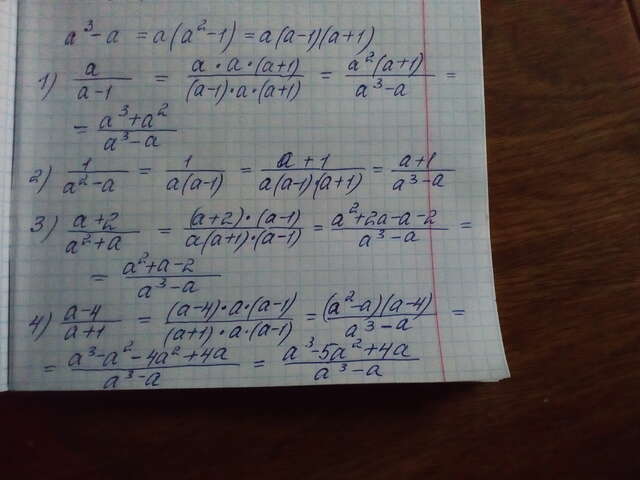 a³-a = a(a²-1) = a(a-1)(a+1)
1) a/(a-1) = (a·a·(a+1))/((a-1)·a·(a+1)) = (a²(a+1))/(a³-a) =
= (a³+a²)/(a³-a)
2) 1/(a²-a) = 1/(a(a-1)) = (a+1)/(a(a-1)(a+1)) = (a+1)/(a³-a)
3) (a+2)/(a²+a) = ((a+2)·(a-1))/(a(a+1)·(a-1)) = (a²+2a-a-2)/(a³-a) =
= (a²+a-2)/(a³-a)
4) (a-4)/(a+1) = ((a-4)·a·(a-1))/((a+1)·a·(a-1)) = ((a²-a)(a-4))/(a³-a) =
= (a³-a²-4a²+4a)/(a³-a) = (a³-5a²+4a)/(a³-a)